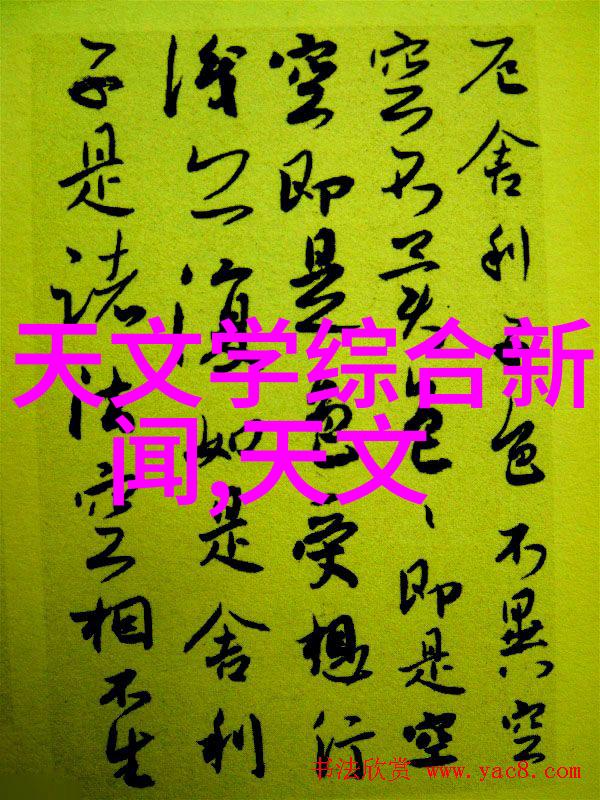 天文学综合新
闻,天文
厄舍利子色不異空
空不異色、即是空
空即是色受想行
識亦復如是舍利
子是諸法空相不生
书法欣赏 www.yac8.com